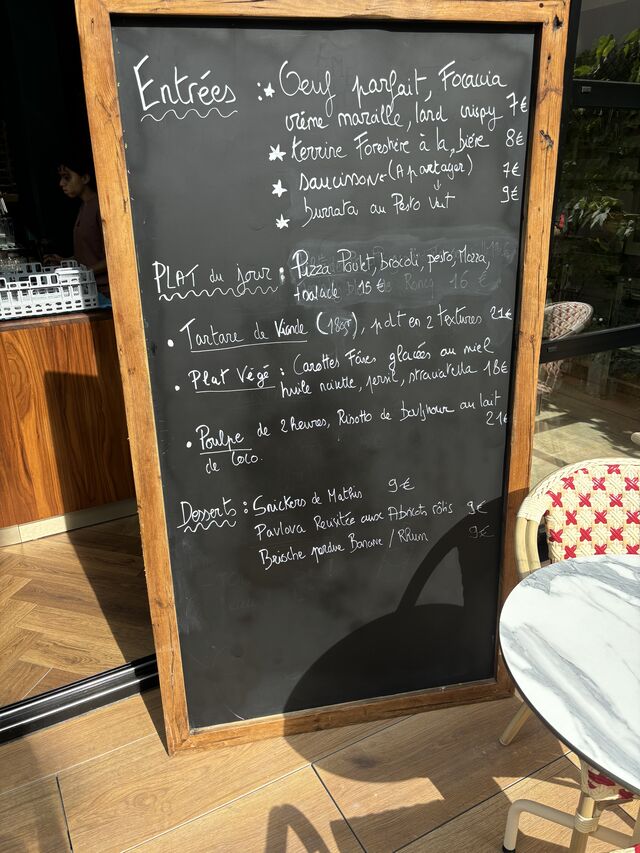 Entrées : Oeuf parfait, Focaccia
crème maroille, lard crispy 7€
terrine Forestière à la bière 8€
saucisson (A partager) 7€
burrata au Pesto vert 9€
PLAT du jour : Pizza Poulet, brocoli, pesto, Mozza,
15€ 16€
Tartare de Viande (180gr), pdt en 2 textures 21€
Plat Végé : Carottes Fânes glacées au miel
huile, persil, stracciatella 18€
Poulpe de 2 heures, Risotto de au lait
de coco. 21€
Desserts : Snickers de Mathis 9€
Pavlova Revisitée aux Abricots rôtis 9€
Brioche perdue Banane / Rhum 9€